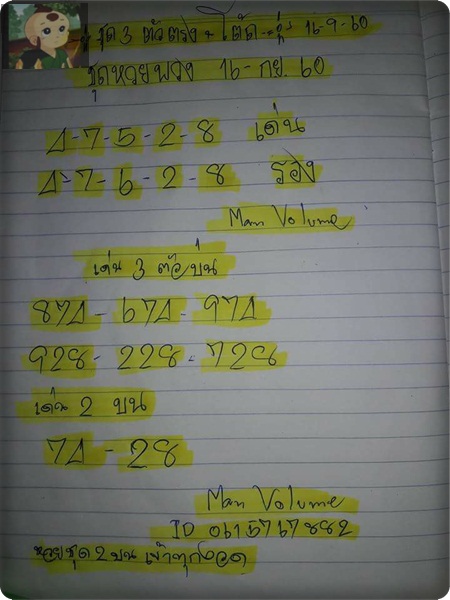 ชุด 3 ตัวตรง - โต๊ด 16-9-60
ชุดหวยพวง 16-กย. 60
4-7-5-2-8 เด่น
4-7-6-2-8 รอง
Man Volume
เด่น 3 ตัวบน
874 - 674 - 974
928 - 228 - 728
เด่น 2 บน
74 - 28
Man Volume
ID 0615767882
หวยชุด 2 บน เข้าทุกงวด